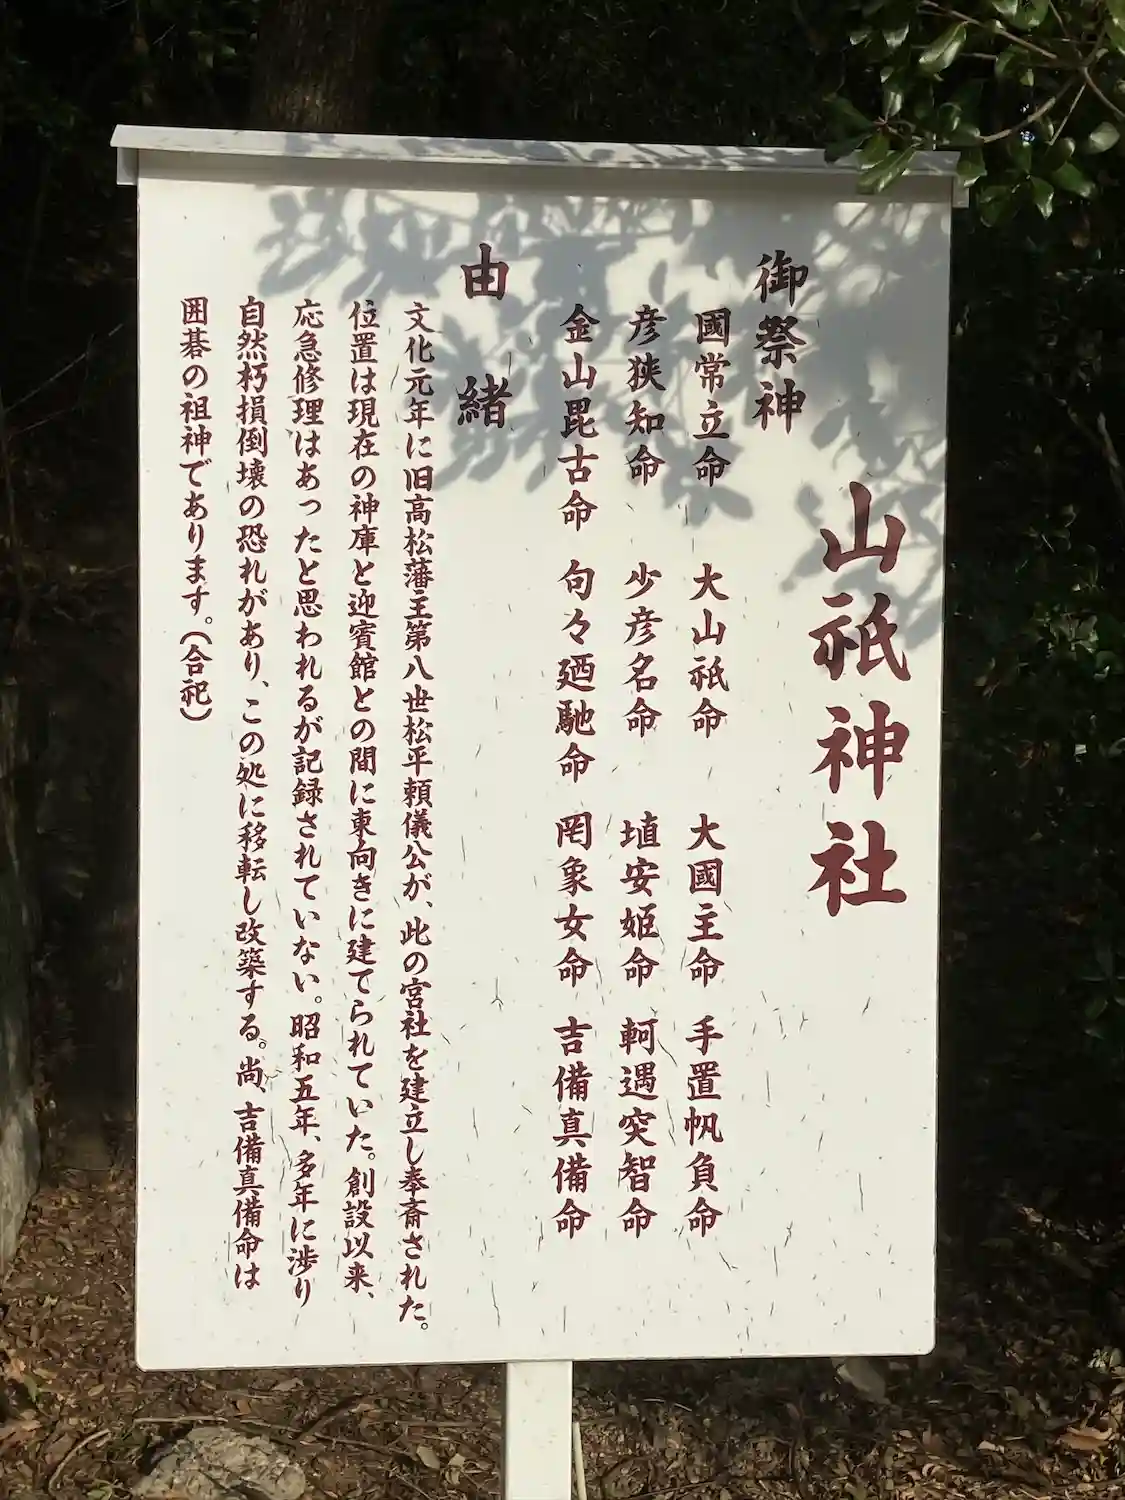 山祇神社
御祭神
國常立命 大山祇命 大國主命 手置帆負命
彦狭知命 少彦名命 埴安姫命 軻遇突智命
金山毘古命 句々廼馳命 罔象女命 吉備真備命
由緒
文化元年に旧高松藩主第八世松平頼儀公が、此の宮社を建立し奉斎された。
位置は現在の神庫と迎賓館との間に東向きに建てられていた。創設以来、
応急修理はあったと思われるが記録されていない。昭和五年、多年に渉り
自然朽損倒壊の恐れがあり、この処に移転し改築する。尚、吉備真備命は
囲碁の祖神であります。(合祀)